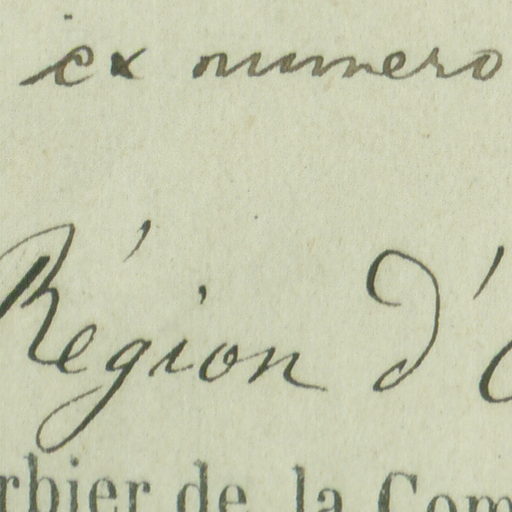 ex numero
Région d'
rbier de la Com